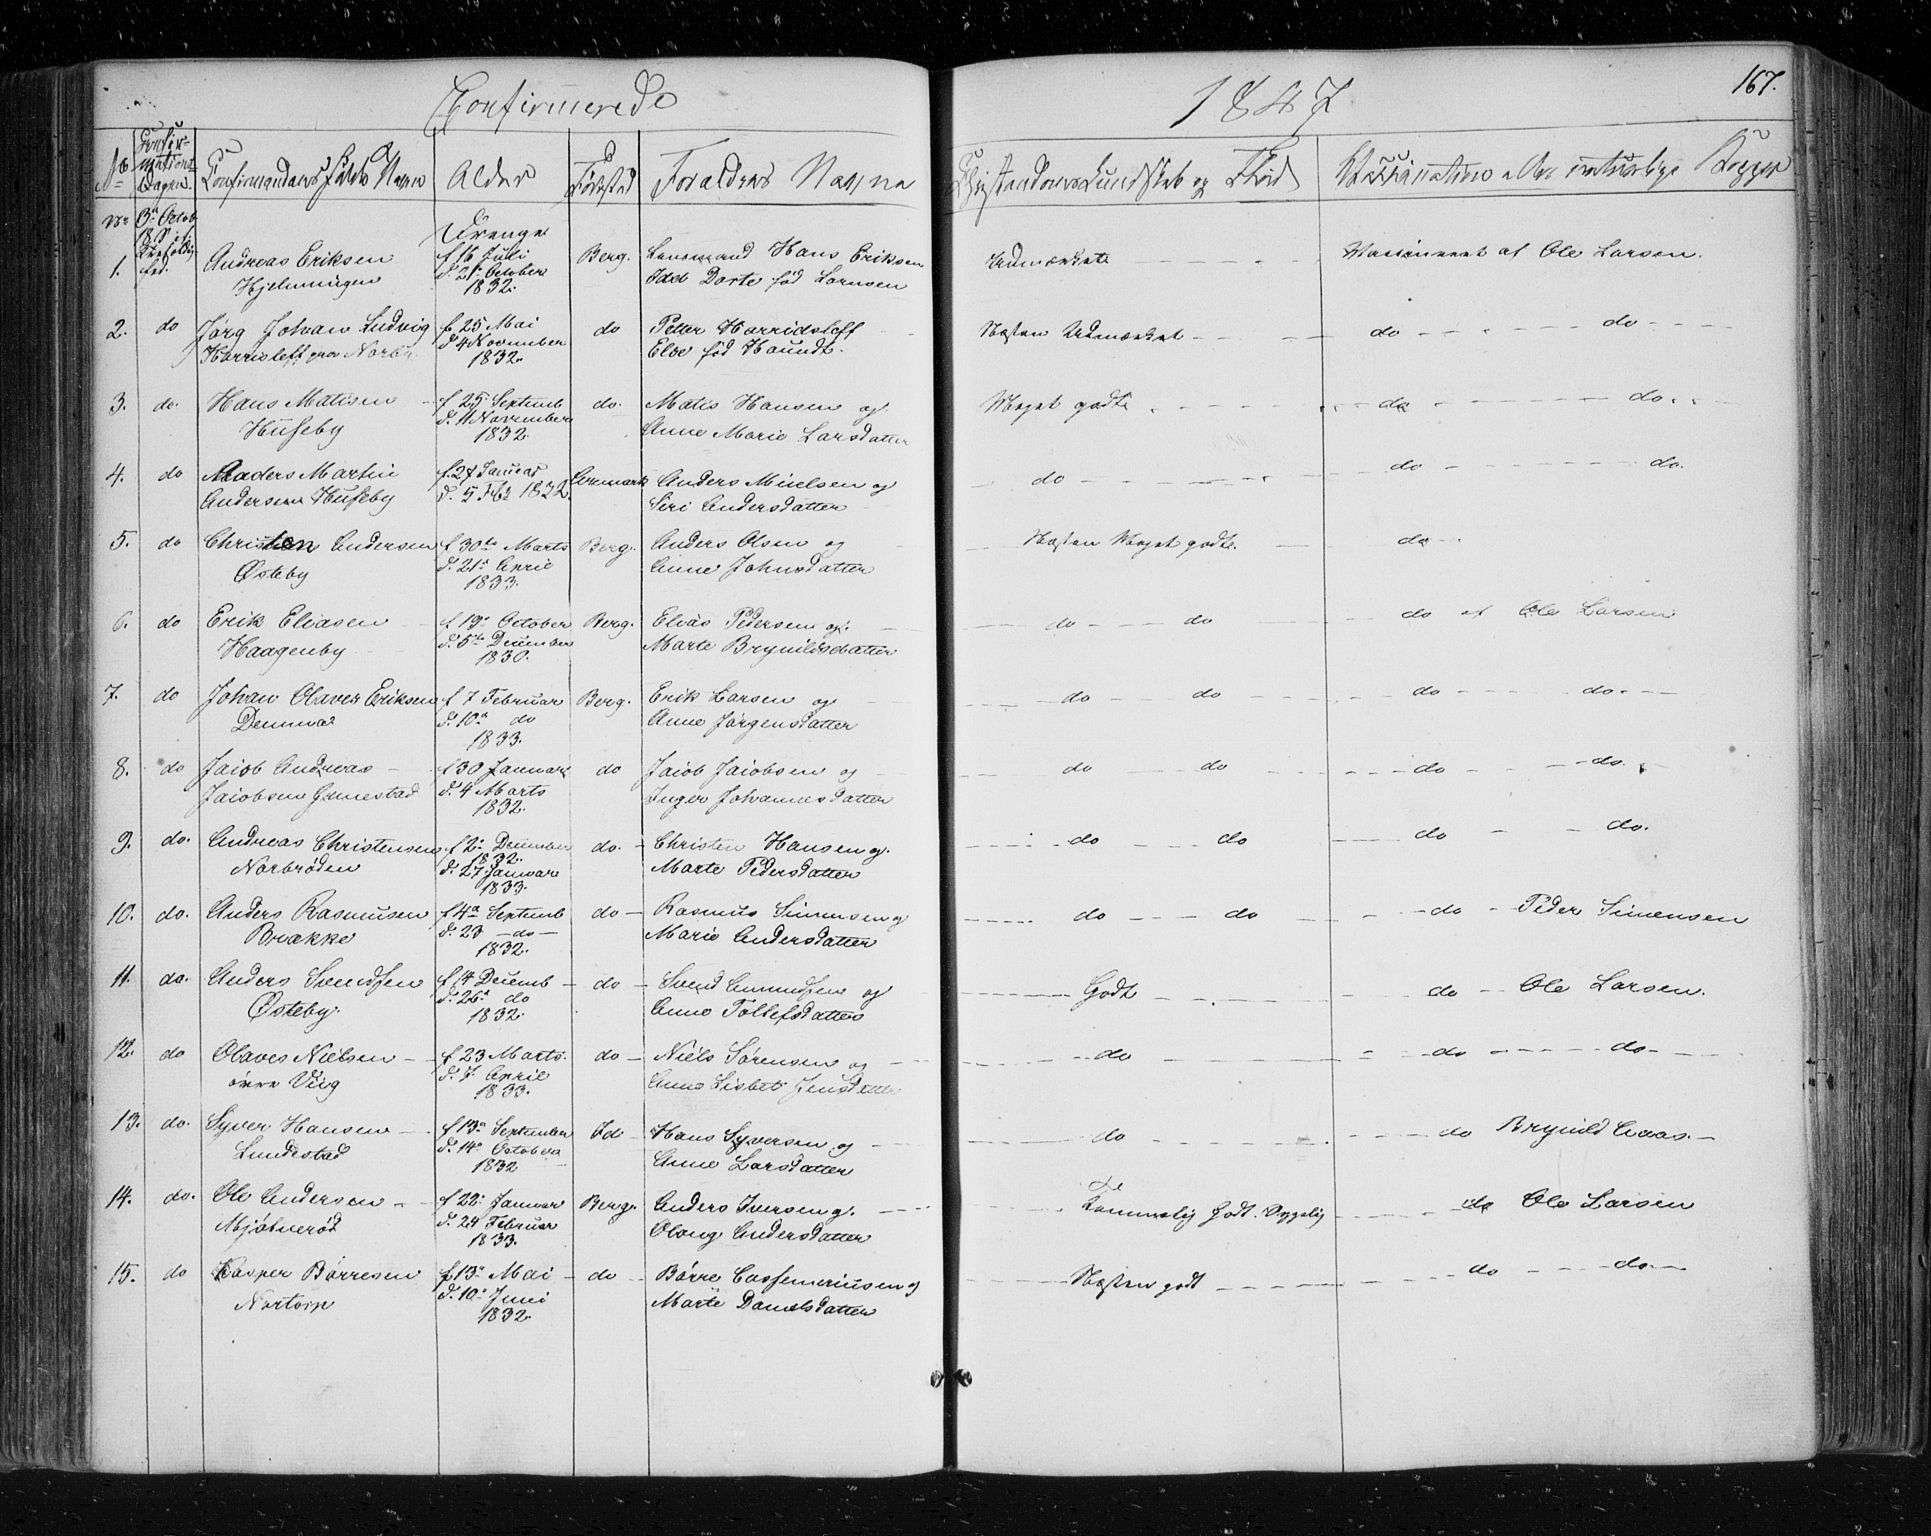 Confirmerede
1847
167.
No
Confirmandens fulde Navn
Alder
Fødested
Forældres Navne
Christendoms Kundskab og Flid
Vaccination eller naturlige Kopper
3die Octob
Drenge
1. Andreas Eriksen f 16 Juli Berg. Lensmand Hans Eriksen Udmærket Vaccineret af Ole Larsen.
Hjelmungen d. 21 October Dorte fød Larnsen
1832.
2. do Jørg Johan Ludvig f 25 Mai do Petter Harridsleff Næsten Udmærket do do
Harrisleff d 4 November Else fød Haundt.
1832.
3. do. Hans Matisen f 25 Septemb do. Matis Hansen og Meget godt do do.
Huseby d. 11 November Anne Marie Larsdatter
1832.
4. do Martin f. 27 Januar Aremark Anders Nielsen og do do do.
Andersen Huseby d. 5 Feb 1832. Siri Andersdatter
5. do Christen Andersen f 30te Marts Berg. Anders Olsen og Næsten Meget godt. do
Østeby d. 21d April Anne Johnsdatter
1833.
6. do Erik Eliasen f 19de October Berg. Elias Pedersen og do do do af Ole Larsen
Haagenby d. 5te December Marte Brynildsdatter
1830.
7. do Johan Olaves Eriksen f 7 Februar Berg. Erik Larsen og do do do do.
d. 10de do Anne Jørgensdatter
1833.
8. do Jacob Andreas f 30 Januar do Jacob Jacobsen og do do do do.
Jacobsen Grimestad d. 4 Marts Inger Johannesdatter
1832.
9. do. Andreas Christensen f 2den December do. Christen Hansen og. do do do do.
1832.
Norbrøden d. 27 Januar Marte Pedersdatter
1833.
10. do. Anders Rasmusen f 4de Septemb do Rasmus Simensen og do do do Peder Simensen
Brække d. 23 do Marie Andersdatter
1832.
11. do. Anders Svendsen f 14 Decemb do Svend Amundsen og Godt do Ole Larsen.
Østeby. d. 26de do Anne Tollefsdatter
1832.
12. do Olaves Nielsen f 23 Marts. do Niels Sørensen og do do do
øvre Viig d. 7. April Anne Lisbet Jensdatter
1833.
13. do. Syver Hansen f 13de September Id Hans Syversen og do do Brynild Aaas.
Lundestad d. 14de October Anne Larsdatter
1832
14. do. Ole Andersen f 22de Januar Berg. Anders Iversen og. Temmelig godt. do Ole Larsen
Mjølnerød d. 24 Februar Oloug Andersdatter
1833.
15. do Casper Børresen f 13de Mai do Børre Cassemeriusen og Næsten godt do do.
Nortorp d. 10de Juni Marte Danielsdatter
1832.